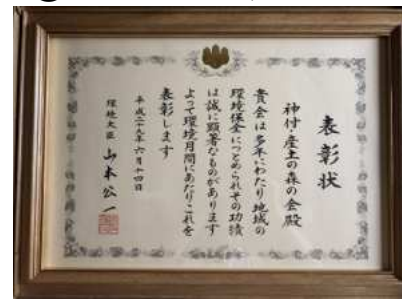 表彰状
神付・産土の森の会殿
貴会は多年にわたり地域の
環境保全につとめられその功績
は誠に顕著なものがあります
よって環境月間にあたりこれを
表彰します
平成二十九年六月十四日
環境大臣 山本公一